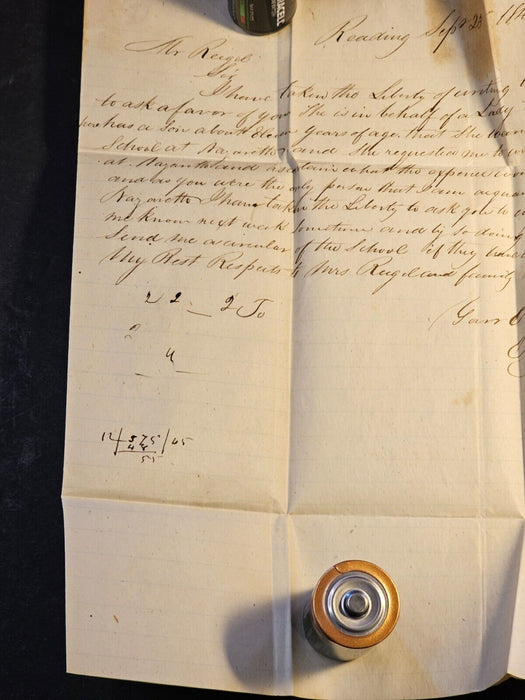 Reading Sept 25 18
Mr Reigel
Sir
I have taken the Liberty of writing
to ask a favor of you The is in behalf of a Lady
has a Son about Eleven years of age. that She wan
School at Nazareth and She requested me to
at Nazareth and ascertain what the expenses
and as you were the only person that I am acqua
Nazareth I have taken the Liberty to ask you to
me know next week Sometime and by so doing
Send me a circular of the School if they have
My Best Respects to Mrs Reigel and family
2 2 _ 2 To
2
4
12 | 575 | 45
48
55